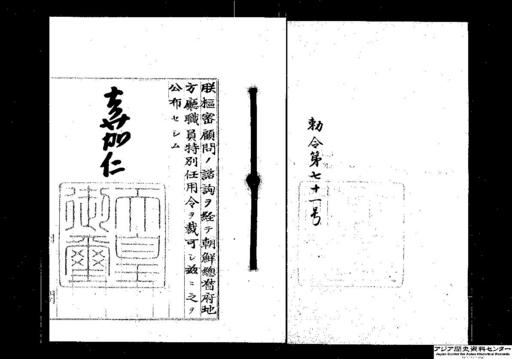 勅令第七十一号
朕樞密顧問ノ諮詢ヲ経テ朝鮮總督府地
方廳職員特別任用令ヲ裁可シ茲ニ之ヲ
公布セシム
嘉仁
天皇
御璽
アジア歴史資料センター
Japan Center for Asian Historical Records